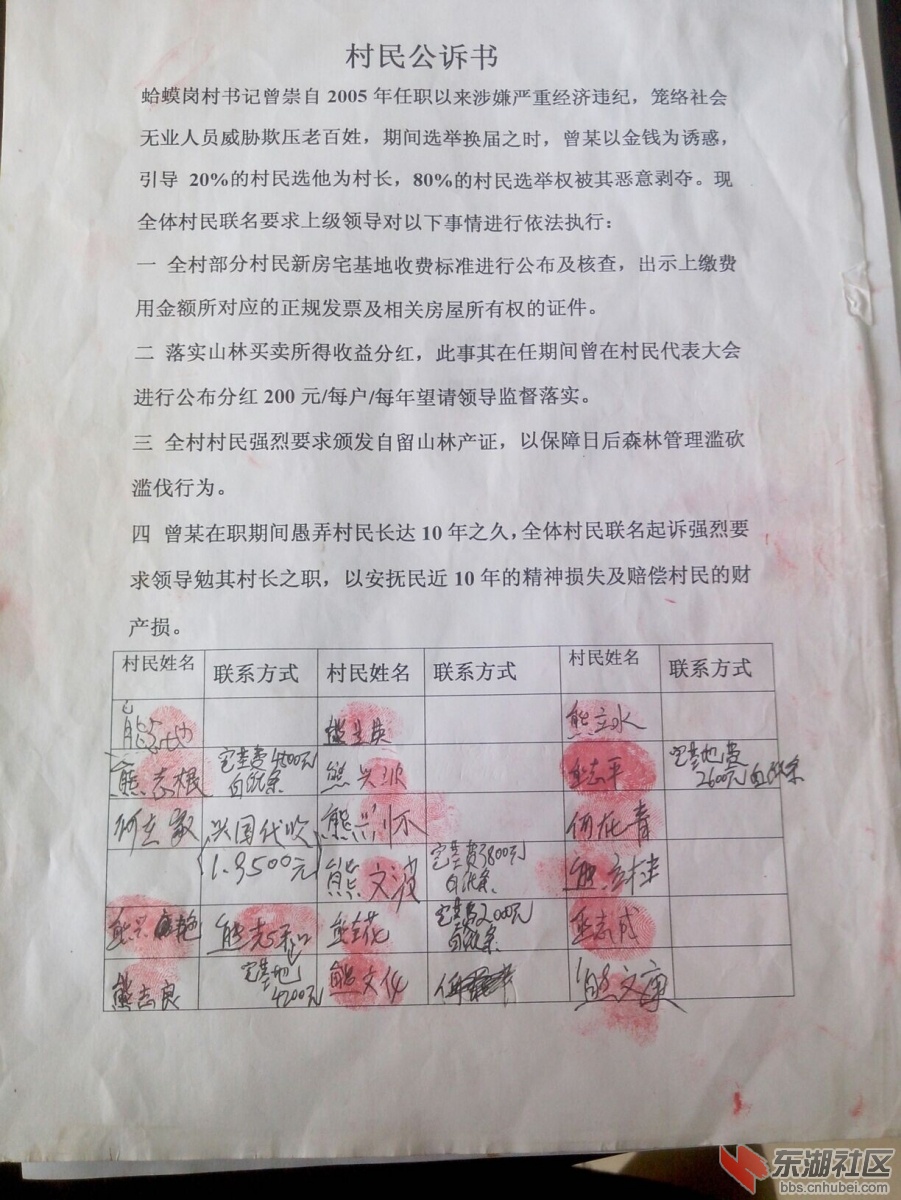 村民公诉书
蛤蟆岗村书记曾崇自 2005 年任职以来涉嫌严重经济违纪，笼络社会
无业人员威胁欺压老百姓，期间选举换届之时，曾某以金钱为诱惑，
引导 20%的村民选他为村长，80%的村民选举权被其恶意剥夺。现
全体村民联名要求上级领导对以下事情进行依法执行：
一 全村部分村民新房宅基地收费标准进行公布及核查，出示上缴费
用金额所对应的正规发票及相关房屋所有权的证件。
二 落实山林买卖所得收益分红，此事其在任期间曾在村民代表大会
进行公布分红 200 元/每户/每年望请领导监督落实。
三 全村村民强烈要求颁发自留山林产证，以保障日后森林管理滥砍
滥伐行为。
四 曾某在职期间愚弄村民长达 10 年之久，全体村民联名起诉强烈要
求领导勉其村长之职，以安抚民近 10 年的精神损失及赔偿村民的财
产损。
村民姓名 联系方式 村民姓名 联系方式 村民姓名 联系方式
熊立英 熊立水
熊志根 宅基费4800元 熊兴波 熊志平 宅基地费
白纸条 2600元白纸条
何立家 兴国代收 熊兴怀 何花青
(1.3500元) 熊文波 宅基费3800元
白纸条
熊立花 宅基费2000元 熊志成
白纸条
熊志良 宅基地 熊文化 熊文康
4200元
东湖社区
bbs.cnhubei.com